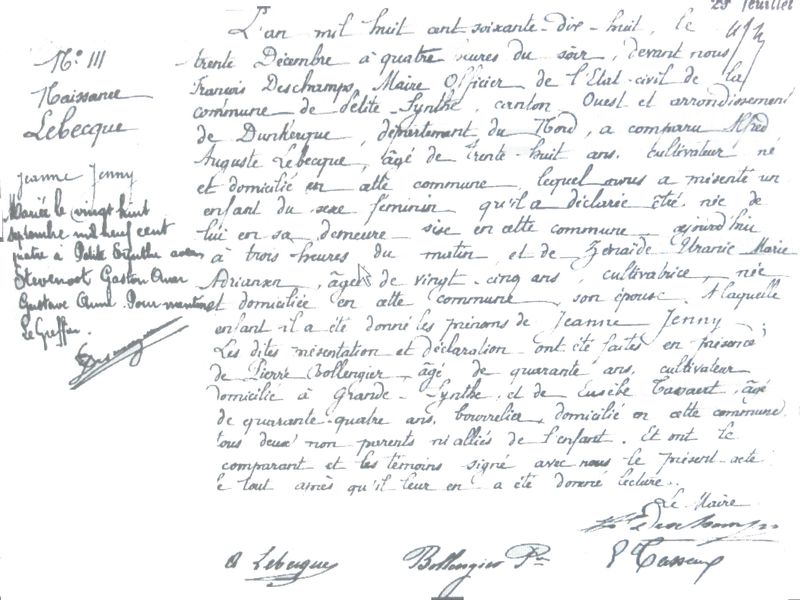 29 Juillet
N° 111
Naissance
Lebecque
Jeanne Jenny
Mariée le vingt huit
septembre mil neuf cent
quatre à Petite Synthe avec
Stevenoot Gaston Omer
Gustave Aimé. Pour mention
Le Greffier.
L'an mil huit cent soixante-dix-huit, le
trente Décembre à quatre heures du soir, devant nous
François Deschamps, Maire Officier de l'Etat-civil de la
commune de Petite-Synthe, canton Ouest et arrondissement
de Dunkerque, département du Nord, a comparu Alfred
Auguste Lebecque, âgé de trente-huit ans, cultivateur né
et domicilié en cette commune, lequel nous a présenté un
enfant du sexe féminin qu'il a déclaré être née de
lui en sa demeure sise en cette commune aujourd'hui
à trois heures du matin, et de Zénaïde Uranie Marie
Adriansen, âgée de vingt-cinq ans, cultivatrice, née
et domiciliée en cette commune, son épouse. A laquelle
enfant il a été donné les prénoms de Jeanne Jenny.
Les dites présentation et déclaration ont été faites en présence
de Pierre Bollengier, âgé de quarante ans, cultivateur
domicilié à Grande-Synthe et de Eusèbe Tassaert, âgé
de quarante-quatre ans, bourrelier, domicilié en cette commune
tous deux non parents ni alliés de l'enfant. Et ont le
comparant et les témoins signé avec nous le présent acte
le tout après qu'il leur en a été donné lecture.
Le Maire
Fs Deschamps
A Lebecque Bollengier Pre E Tassaert